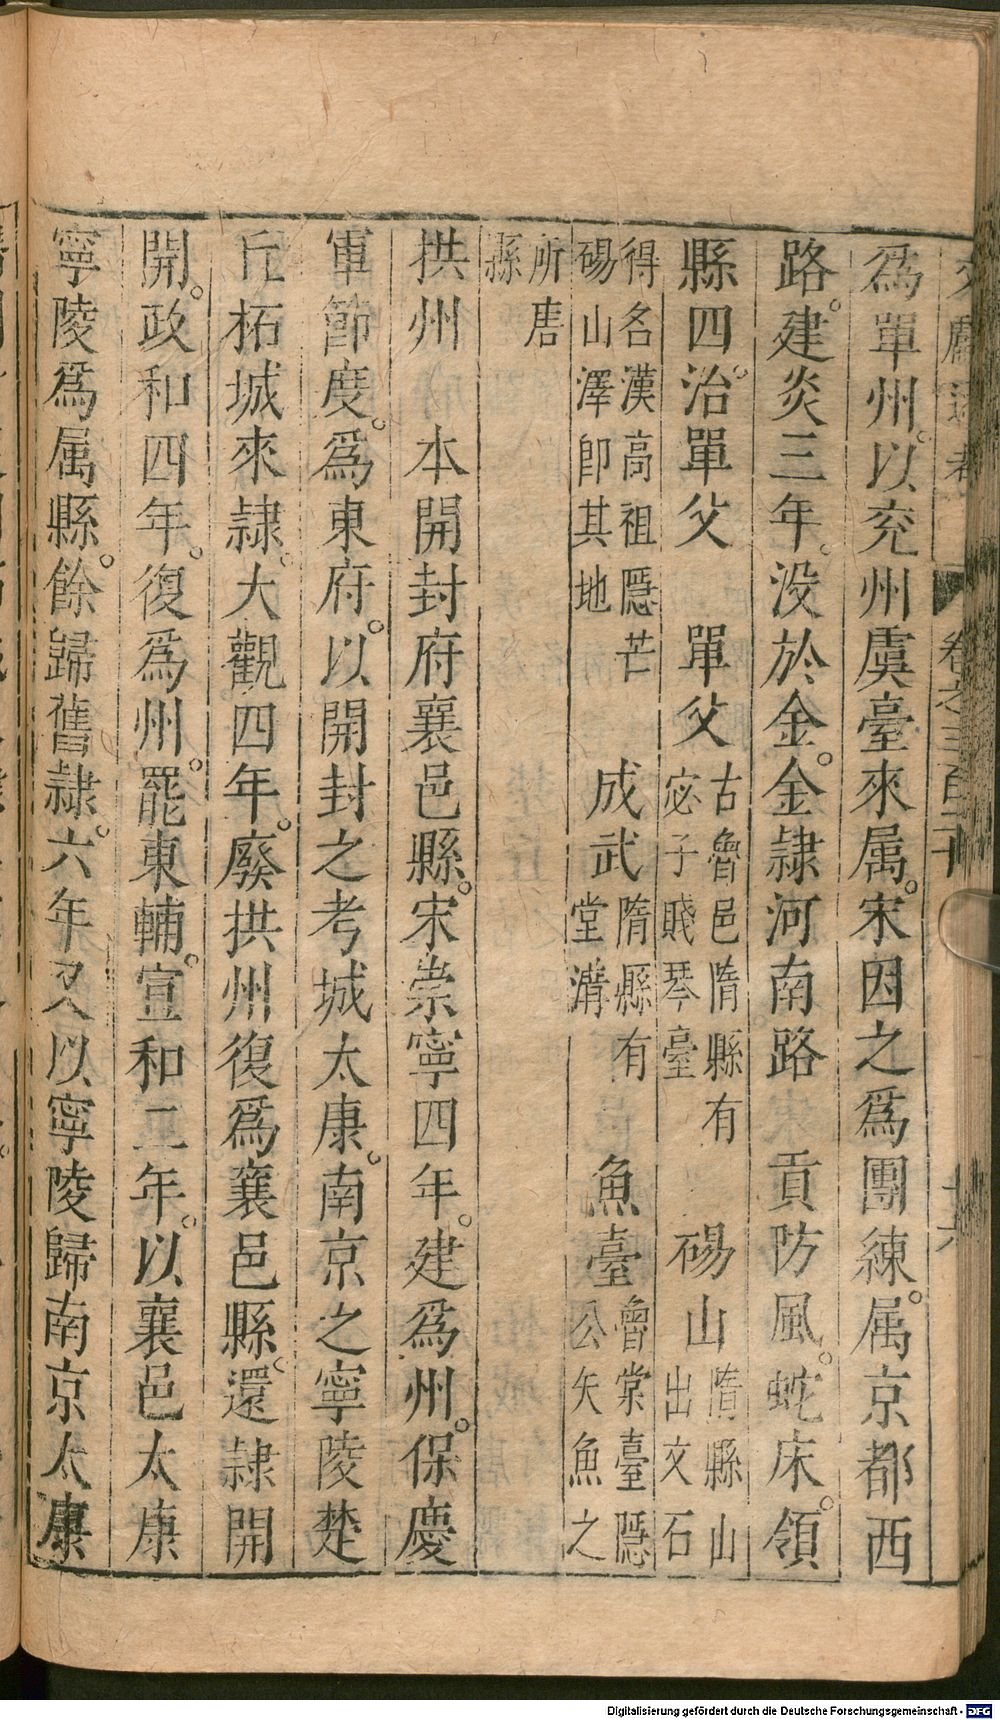 文獻通考 卷之三百二十 十六
為單州。以兖州虞臺來属。宋因之為團練。属京都西
路。建炎三年。没於金。金隷河南路 貢防風。蛇床。領
縣四。治單父 單父 古魯邑隋縣有宓子賤琴臺 碭山 隋縣山出文石
得名漢高祖隠芒碭山澤卽其地 成武 隋縣有堂溝 魚臺 魯棠臺隠公矢魚之
所唐縣
拱州 本開封府襄邑縣。宋崇寧四年。建為州。保慶
軍節度。為東府。以開封之考城太康。南京之寧陵楚
丘柘城來隷。大觀四年。廢拱州復為襄邑縣。還隷開
開。政和四年。復為州。罷東輔。宣和二年。以襄邑太康
寧陵為属縣。餘歸舊隷。六年又以寧陵歸南京太康
Digitalisierung gefördert durch die Deutsche Forschungsgemeinschaft - DFG